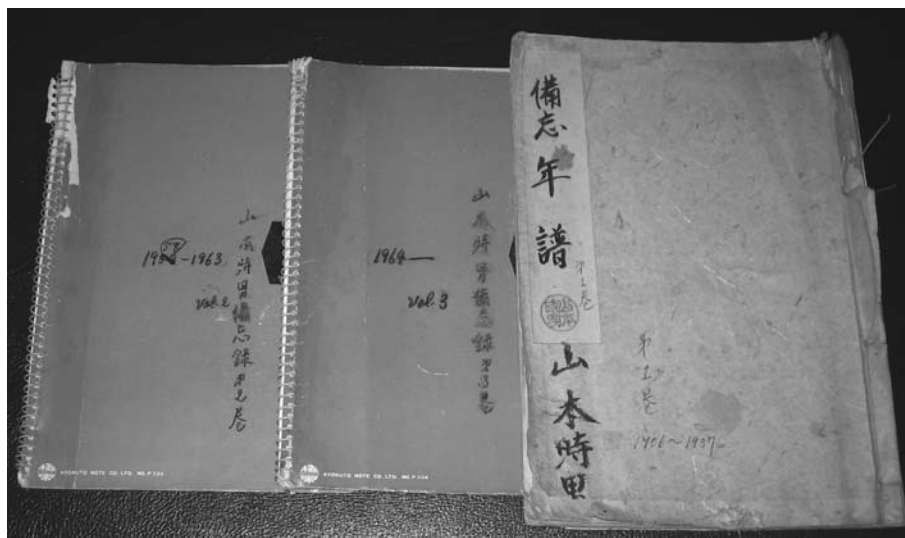 1958-1963
Vol. 2
山本時男備忘録 第2巻
KYOKUTO NOTE CO. LTD. NO. P 334
1964—
Vol. 3
山本時男備忘録 第3巻
KYOKUTO NOTE CO. LTD. NO. P 334
備忘年譜
第1巻
山本時男
第1巻
1906~1957